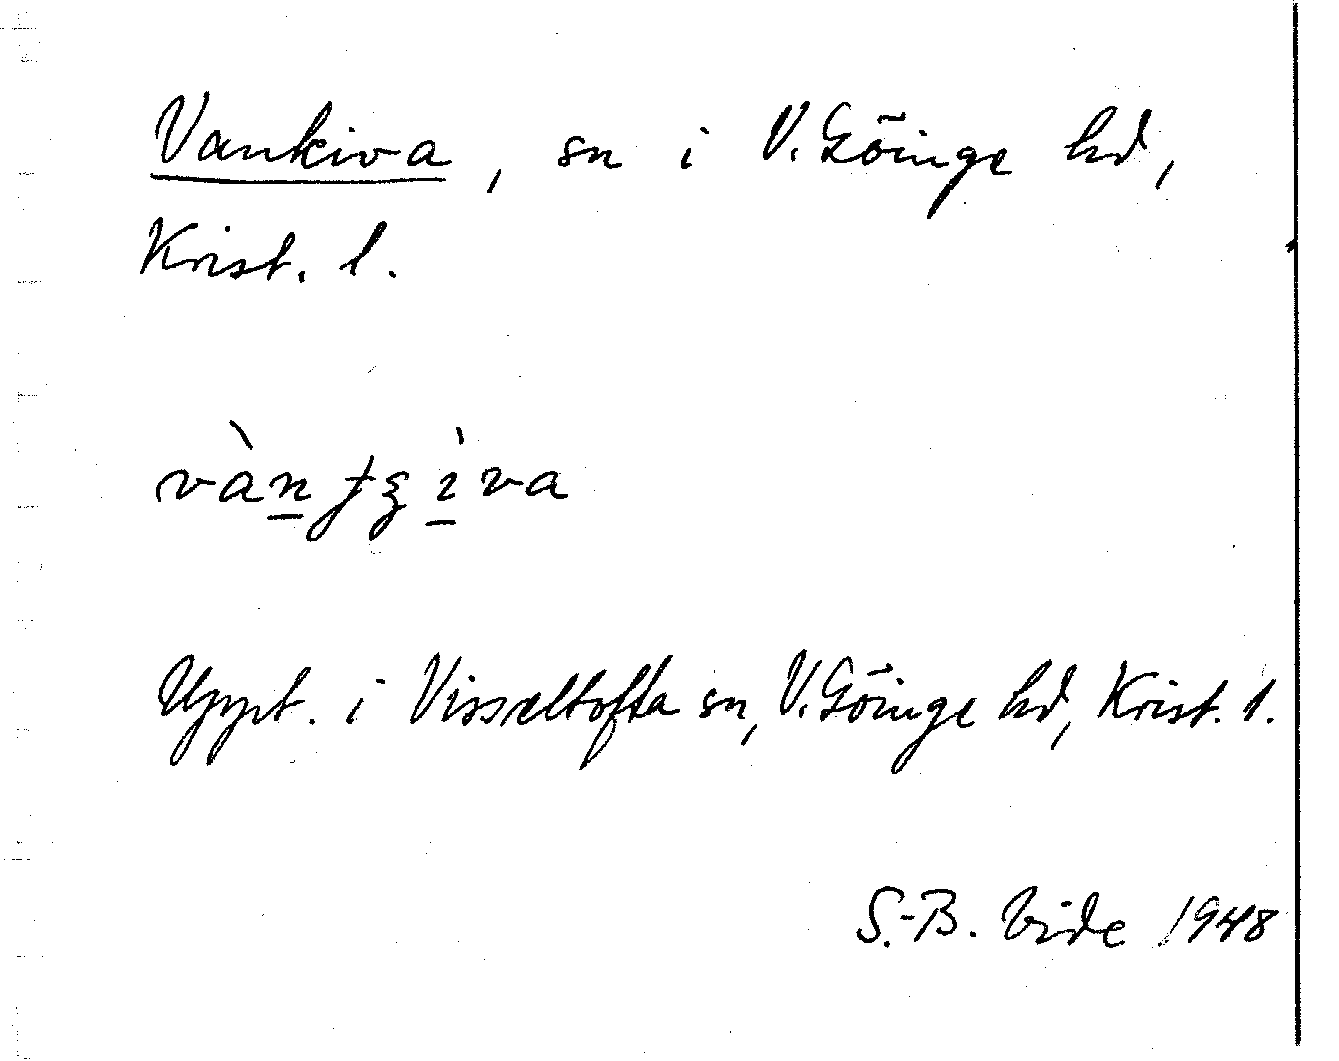 Vankiva, sn i V. Göinge hd,
Krist. l.
vàn̲ɟʒì̲va
Uppt. i Visseltofta sn, V. Göinge hd, Krist. l.
S.-B. Vide 1948